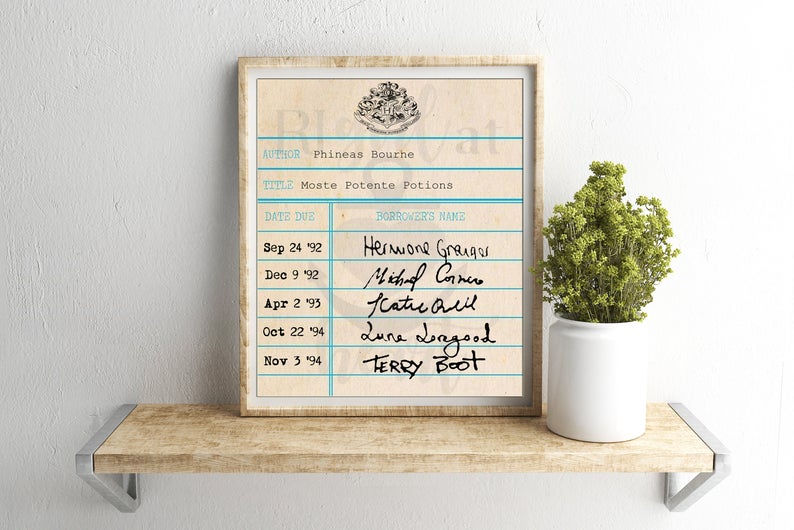 AUTHOR Phineas Bourhe
TITLE Moste Potente Potions
DATE DUE BORROWER'S NAME
Sep 24 '92 Hermione Granger
Dec 9 '92 Michael Corner
Apr 2 '93 Katie Bell
Oct 22 '94 Luna Lovegood
Nov 3 '94 TERRY BOOT